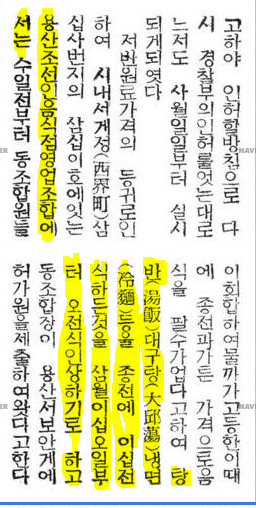 고하야 인허할방침으로 다
시 경찰부의인허를엇는대로
느저도 사월일일부터 실시
되게되엿다
저반원료가격의 등귀로인
하여 시내서계정(西界町)삼
십사번지의 삼십이호에잇는
용산조선인음식점영업조합에
서는 수일전부터 동조합원들
이회합하여물까가고등한이때
에 종선파가튼 가격으로음
식을 팔수가업다고하여 탕
반(湯飯)대구탕(大邱蕩)냉면
(冷麵)등을 종전에 이십전
식하든것을 삼월이십오일부
터 오전식인상하기로 하고
동조합장이 용산서보안게에
허가원을제출하여왓다고한다